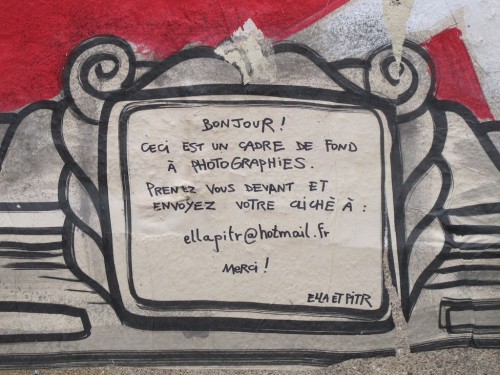 BONJOUR !
CECI EST UN CADRE DE FOND
À PHOTOGRAPHIES.
PRENEZ VOUS DEVANT ET
ENVOYEZ VOTRE CLICHÉ À :
ellapitr@hotmail.fr
Merci !
ELLA ET PITR